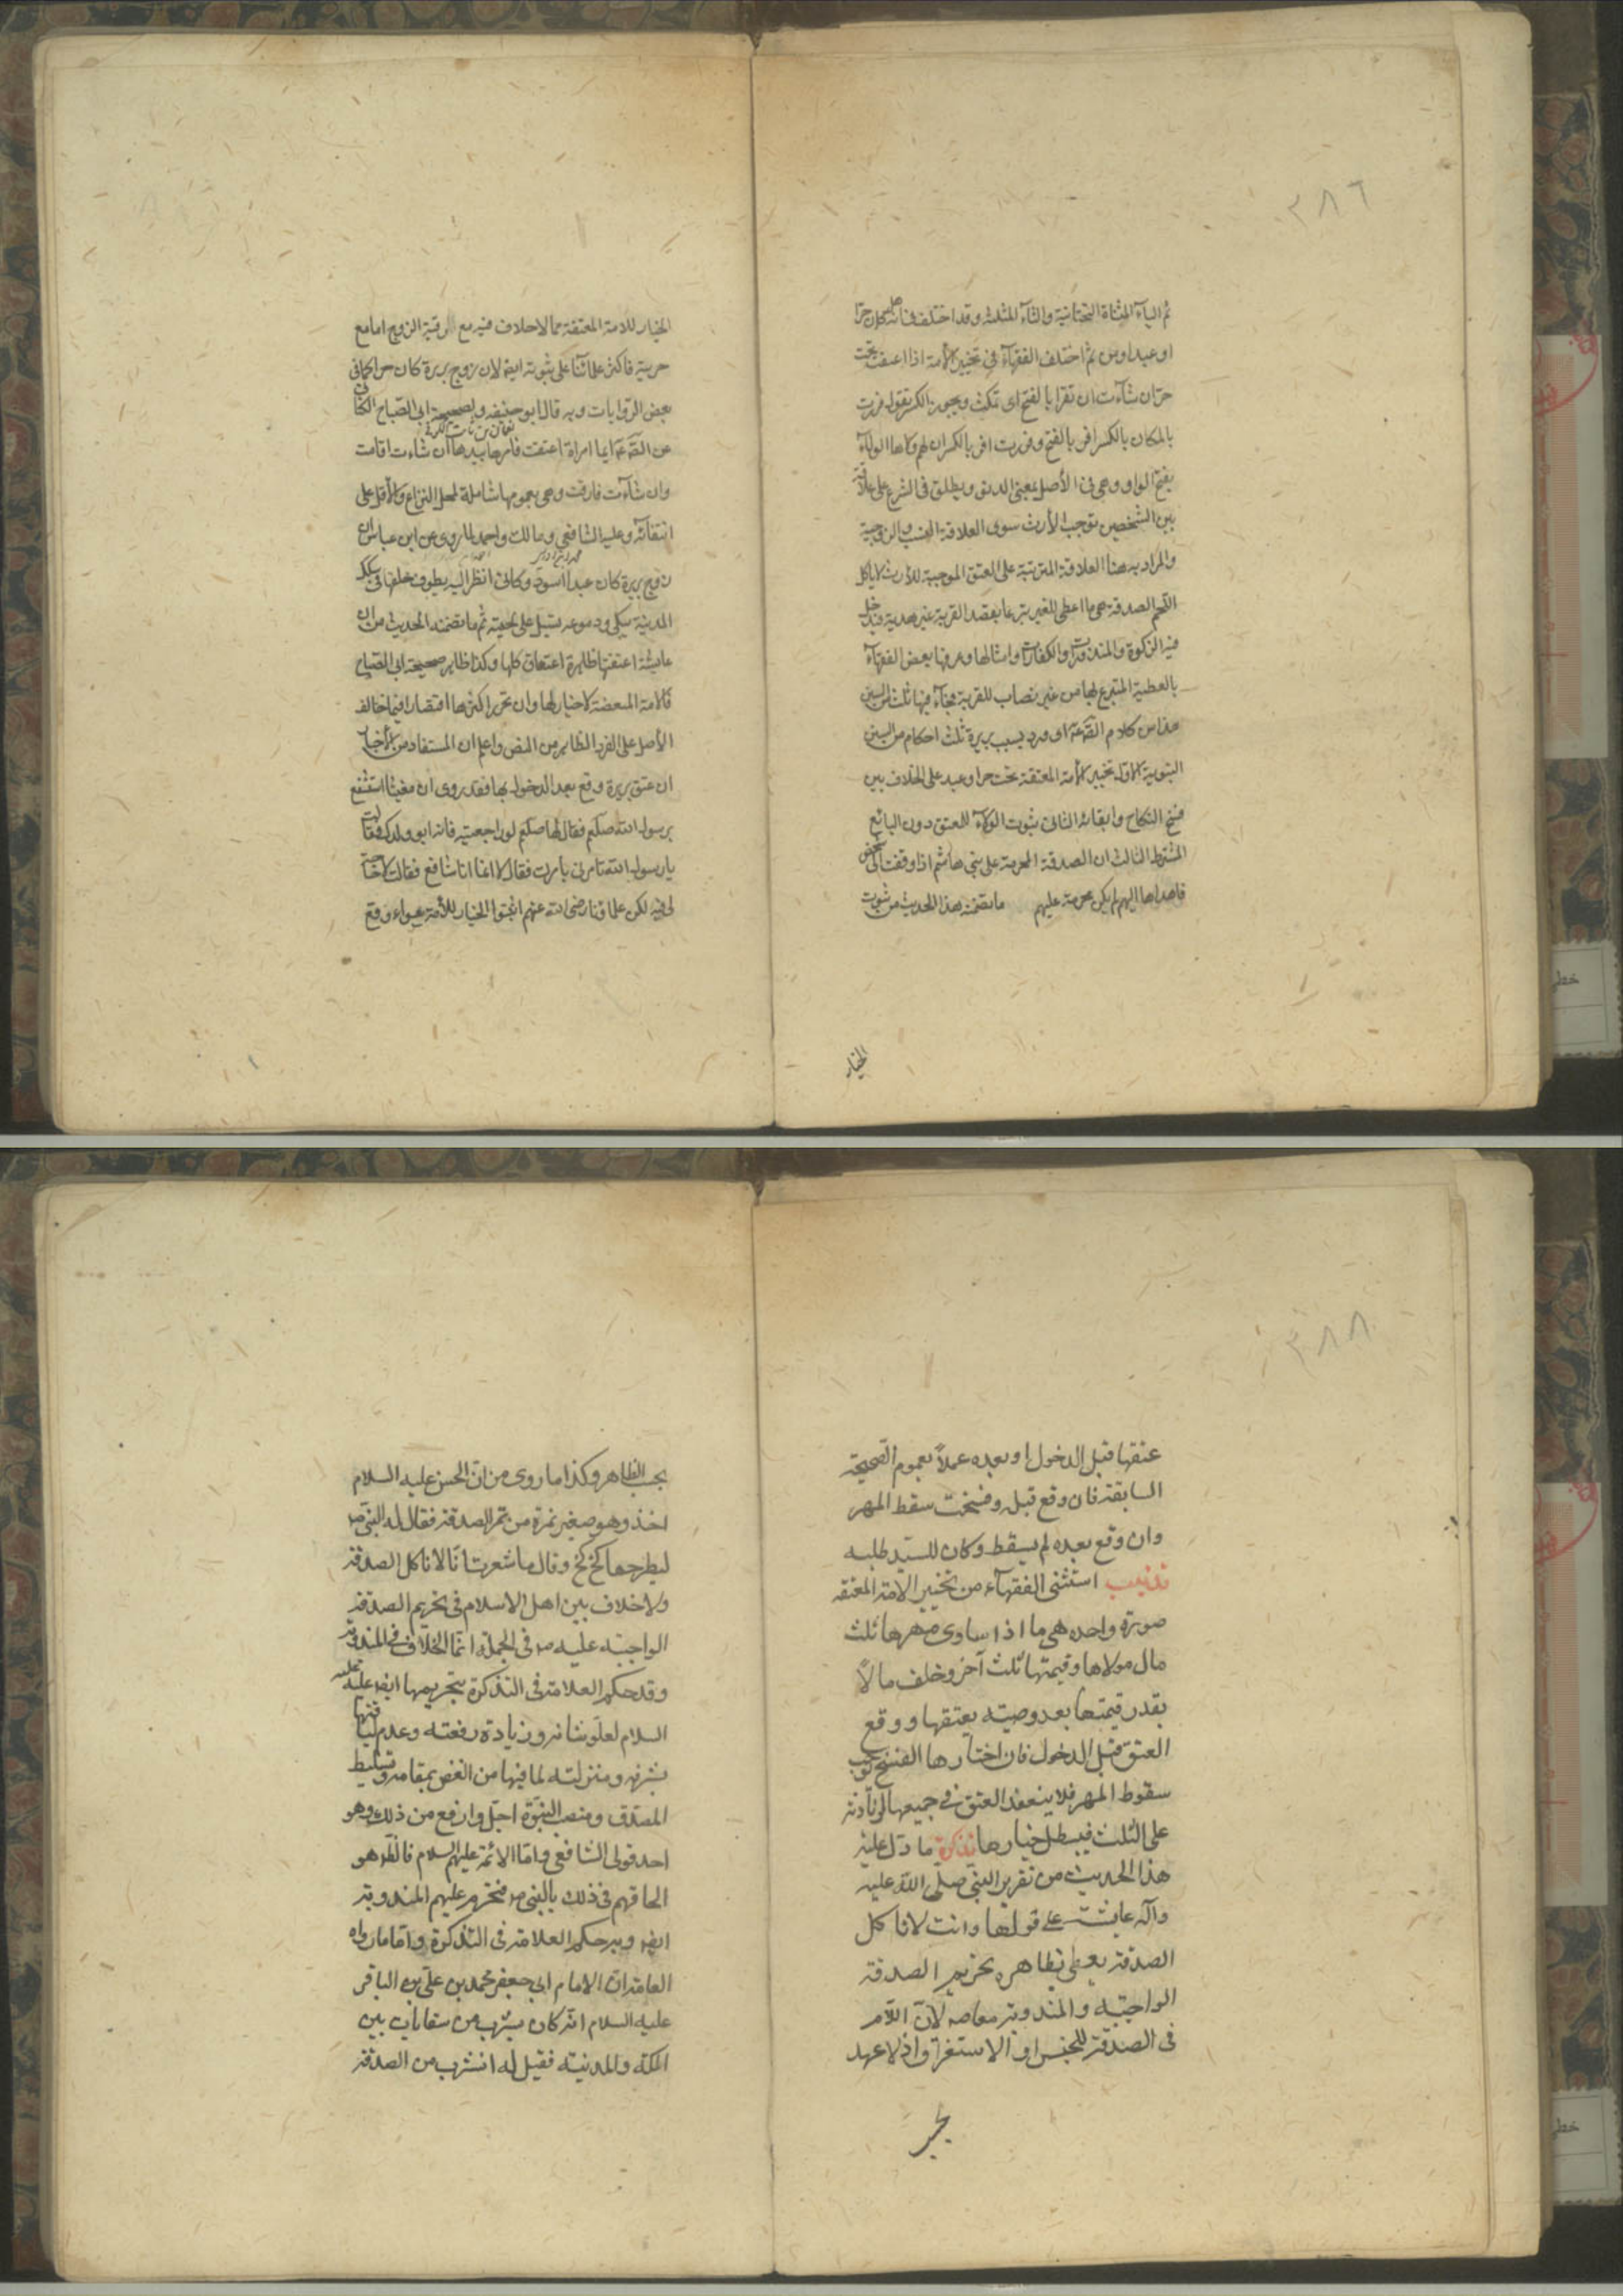 ٣٨٦
ثم الياء المثناة التحتانية والثاء المثلثة وقد اختلف فى انه هل كان حرا
او عبدا ومن ثم اختلف الفقهآء فى تخيير الأمة اذا اعتقت تحت
حر ان شآءت ان تقرا بالفتح اى تمكث ويجوز الكسر تقول قررت
بالمكان بالكسر اقر بالفتح وقررت اقر بالكسر ان لهم ولاءها الولآء
بفتح الواو وهى فى الأصل بمعنى الدنو ويطلق فى الشرع على علاقة
بين الشخصين توجب الأرث سوى العلاقة النسب والزوجية
والمراد به هنا العلاقة المترتبة على العتق الموجبة للأرث لا ياكل
اللحم الصدقة هى ما اعطى للغير تبرعا بقصد القربة غير هدية فيدخل
فيه الزكوة والمنذورات والكفارات وامثالها وعرفها بعض الفقهآء
بالعطية المتبرع بها من غير نصاب للقربة فجآء فيها ثلث من السنن
هذا من كلام الصّ عه اى ورد بسبب بريرة ثلث احكام من السنن
النبوية الأول تخيير الأمة المعتقة تحت حر او عبد على الخلاف بين
فسخ النكاح وابقائه الثانى ثبوت الولآء للمعتق دون البائع
المشترط الثالث ان الصدقة المحرمة على بنى هاشم اذا وقفت الى شخص
فاهداها اليهم لم يكن محرمة عليهم ما تضمنه هذا الحديث من ثبوت
الخيار
الخيار للامة المعتقة مما لا خلاف فيه مع رقية الزوج اما مع
حريته فاكثر علمائنا على ثبوته ايضا لان زوج بريرة كان حرا كما فى
بعض الروايات وبه قال ابو حنيفه ولصحيحة ابى الصباح الكنانى
نعمان بن ثابت الكوفى
عن الصّ عه ايما امراة اعتقت فامرها بيدها ان شاءت اقامت
وان شآءت فارقت وهى بعمومها شاملة لمحل النزاع والأقل على
انتفائه وعليه الشافعى ومالك واحمد لما روى عن ابن عباس ان
زوج بريرة كان عبدا اسود وكانى انظر اليه يطوف خلفها فى سكك
المدينة يبكى ودموعه تسيل على لحيته ثم ما تضمنه الحديث من ان
عايشة اعتقتها ظاهرة اعتقاق كلها وكذا ظاهر صحيحة ابى الصباح
فالامة المبعضة لا خيار لها وان تحرر اكثرها اقتصارا فيما خالف
الأصل على الفرد الظاهر من النص واعلم ان المستفاد من الأخبار
ان عتق بريرة وقع بعد الدخول بها فقد روى ان مغيثا استشفع
برسول الله صلعم فقال لها صلعم لو راجعتيه فانه ابو ولدك فقالت
يا رسول الله تامرنى بامرت فقال لا انما انا شافع فقالت لا حاجة
لى فيه لكن علماؤنا رضى الله عنهم اثبتوا الخيار للأمة سواء وقع
٣٨٨
عتقها قبل الدخول او بعده عملاً بعموم الصحيحة
السابقة فان وقع قبله وفسخت سقط المهر
وان وقع بعده لم يسقط وكان للسيّد طلبه
تذنيب استثنى الفقهآء من تخيير الامة المعتقه
صورة واحده هى ما اذا ساوى مهرها ثلث
مال مولاها وقيمتها ثلث آخر وخلف مالاً
بقدر قيمتها بعد وصيته بعتقها ووقع
العتق قبل الدخول فان اختارها الفسخ يوجب
سقوط المهر فلا ينعقد العتق فى جميعها لزيادته
على الثلث فيبطل خيارها تذكرة ما دل عليه
هذا الحديث من تقرير النبى صلّى اللّه عليه
وآله عايشة على قولها وانت لا تاكل
الصدقة يعطى بظاهره تحريم الصدقة
الواجبته والمندوبة معا صه لأنّ اللّام
فى الصدقة للجنس او الاستغراق اذ لا عهد
بحسب الظاهر وكذا ما روى من انّ الحسن عليه السلام
اخذ وهو صغير تمرة من تمر الصدقة فقال له النبىّ ص
ليطرحها كخ كخ وقال ما شعرت انّا لا ناكل الصدقة
ولا خلاف بين اهل الاسلام فى تحريم الصدقة
الواجبته عليه ص فى الجملة انّما الخلاف فى المندوبة
وقد حكم العلامة فى التذكرة بتحريمها ايضا عليه
السلام لعلوّ شانه وزيادة رفعته وعدم لياقتها
بشرفه ومنزلته لما فيها من الغض بمقامه وتسليط
المصدّق ومنصب النبوّة اجلّ وارفع من ذلك وهو
احد قولى الشافعى وامّا الائمة عليهم السلام فالظّ هو
الحاقهم فى ذلك بالنبىّ ص فتحرم عليهم المندوبة
ايضا وبه حكم العلامة فى التذكرة وامّا ما رواه
العامة انّ الامام ابى جعفر محمد بن علىّ بن الباقر
عليه السلام انّه كان يشرب من سقايات بين
المكه والمدنيته فقيل له اتشرب من الصدقة